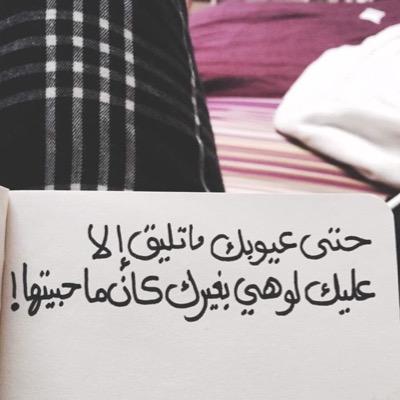 حتى عيوبك ماتليق إلا
عليك لو هي بغيرك كان ما حبيتها!